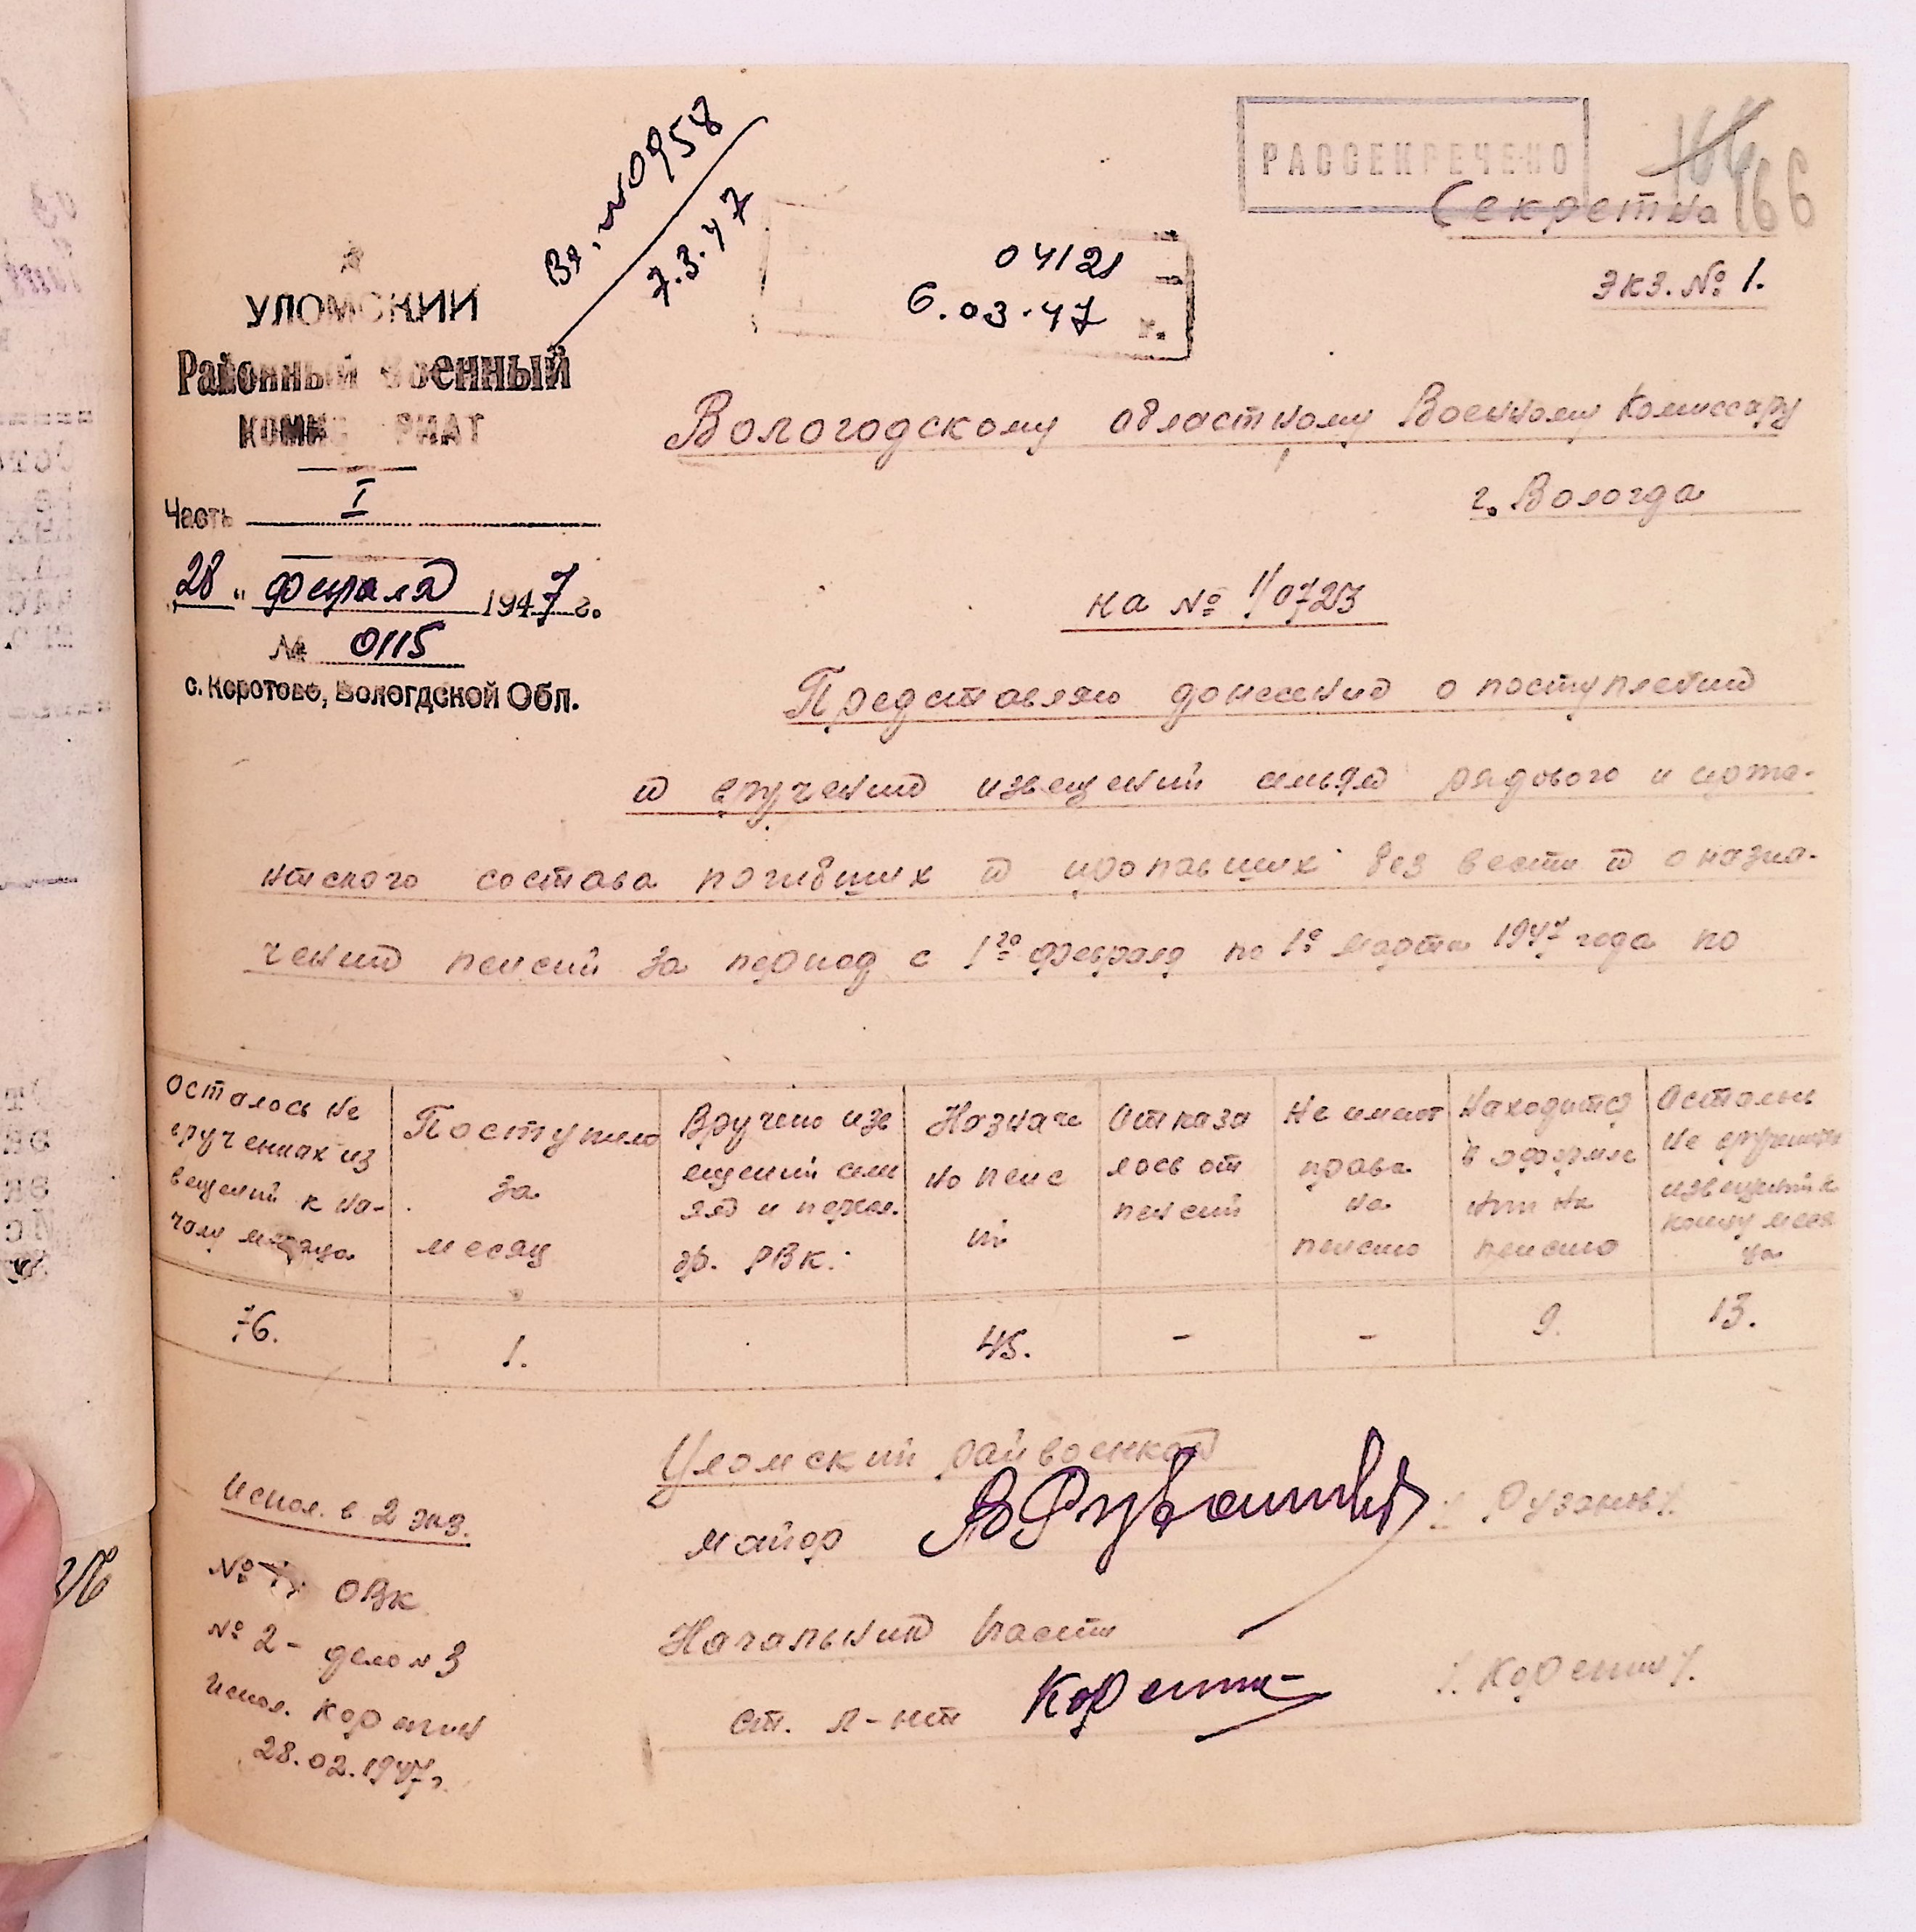 Вх. №0958
7.3.47
РАССЕКРЕЧЕНО
166
Секретно
экз. № 1.
0412
6.03.47
г.
УЛОМСКИЙ
Районный Военный
КОМИССАРИАТ
Часть I
28 " февраля 1947 г.
№ 0115
с. Коротово, Вологдской Обл.
Вологодскому областному Военному Комиссару
г. Вологда
на № 1/0723
Представляю донесение о поступлении
и вручении извещений семьям рядового и сержа-
нтского состава погибших и пропавших без вести и о назна-
чении пенсий за период с 1го февраля по 1е марта 1947 года по
Осталось не врученных извещений к началу месяца
Поступило за месяц
Вручено извещений семьям и др. РВК.
Назначено пенсий
Отказалось от пенсий
Не имеют права на пенсию
Находится в оформлении на пенсию
Осталось не вручен извещений к концу месяца
76.
1.
45.
-
-
9.
13.
Уломский райвоенком
майор / Рузанов /.
Начальник части
ст. л-нт Корешин / Корешин /.
Испол. в 2 экз.
№ 1 ОВК
№ 2 - дело № 3
Испол. Корешин
28.02.1947 г.